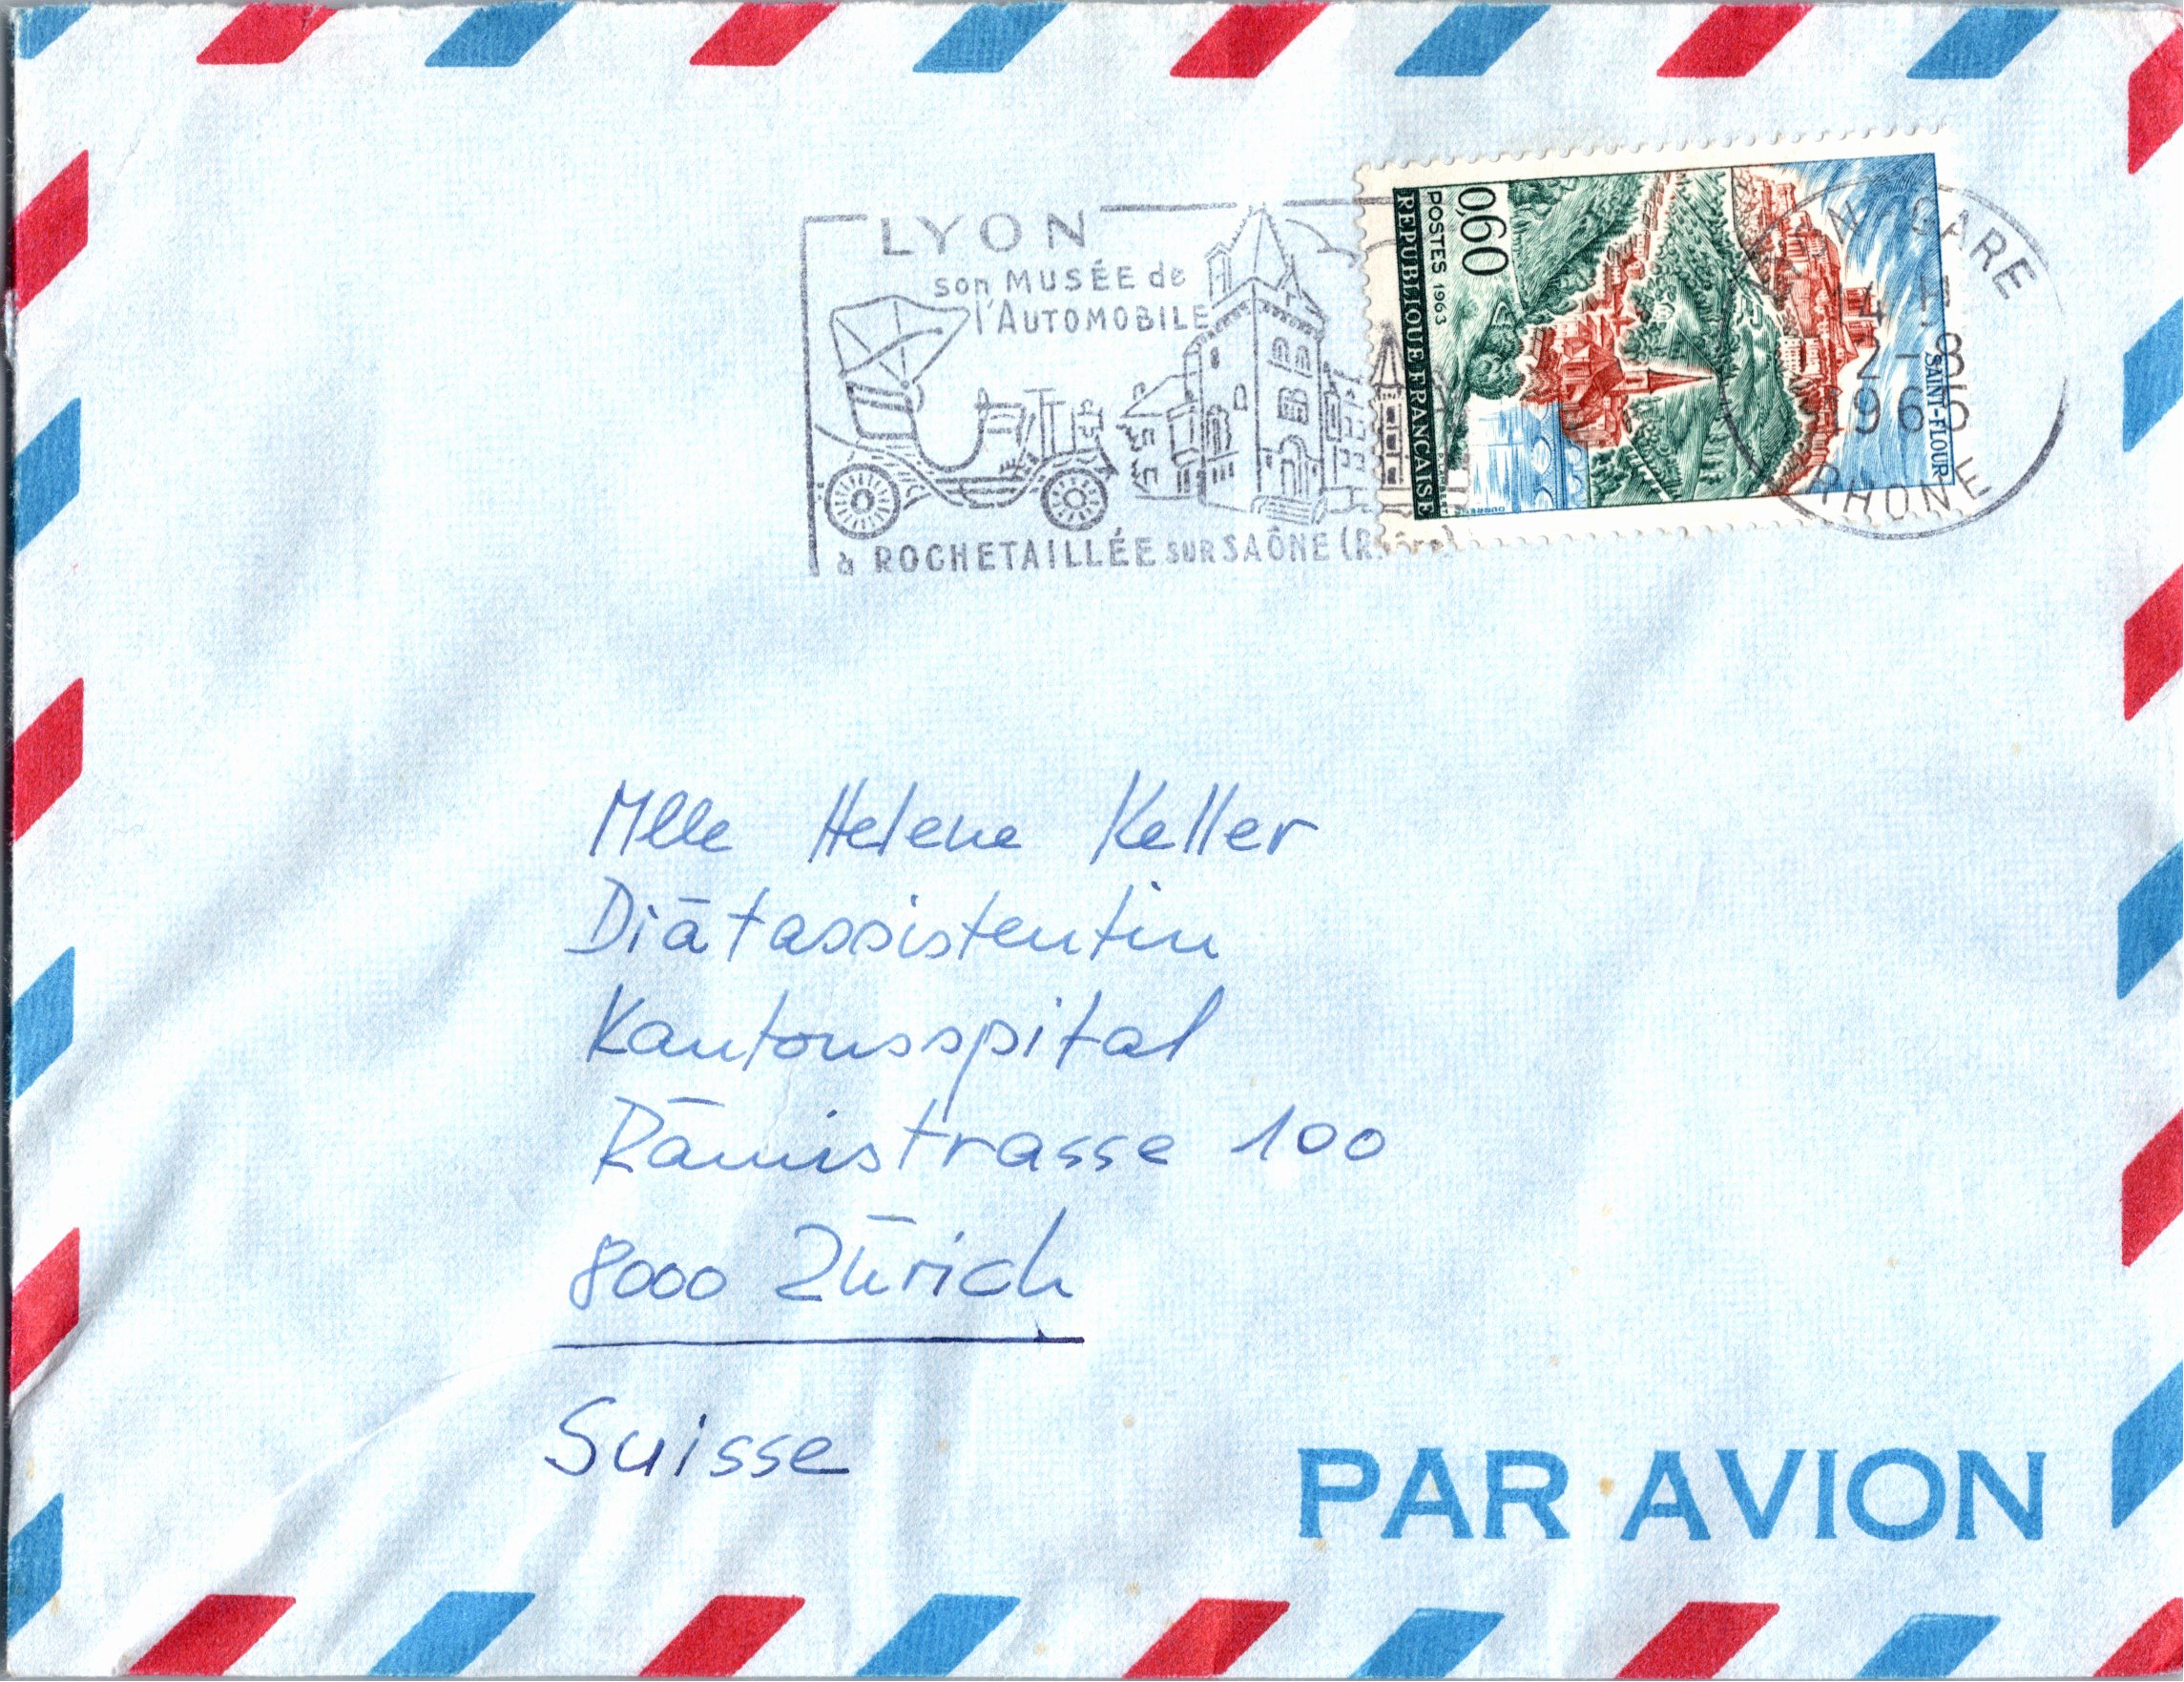 LYON
son MUSÉE de
l'AUTOMOBILE
à ROCHETAILLÉE SUR SAÔNE (Rhône)
0,60
POSTES 1963
REPUBLIQUE FRANÇAISE
SAINT-FLOUR
GARE
RHONE
Mlle Helene Keller
Diātassistentin
Kantonsspital
Rāmistrasse 100
8000 Zūrich
Suisse
PAR AVION